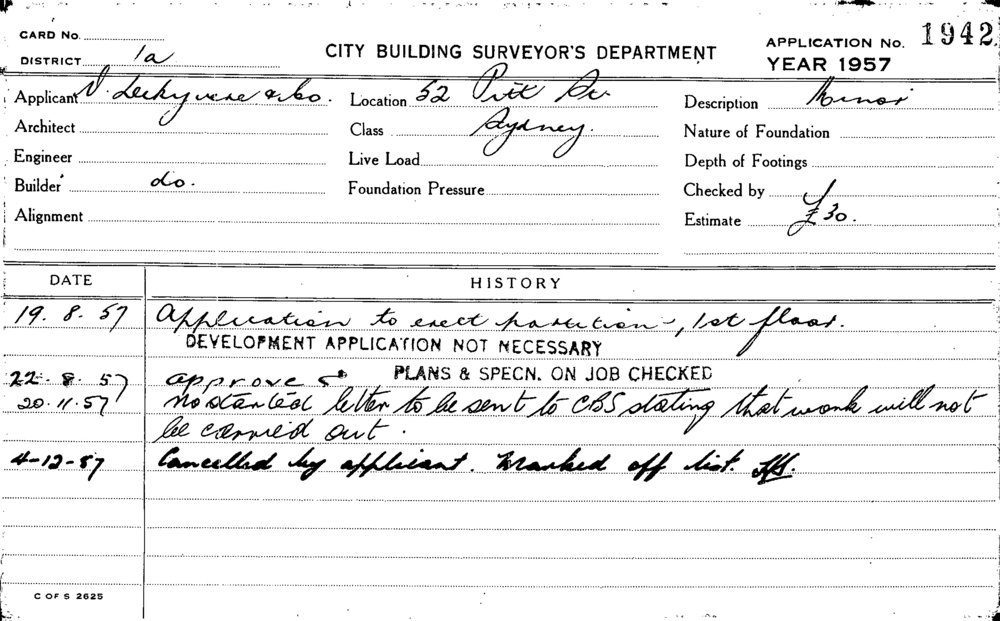 CARD No.
DISTRICT 1a
CITY BUILDING SURVEYOR'S DEPARTMENT
APPLICATION No. 1942
YEAR 1957
Applicant & Co.
Location 52 Pitt St.
Description Minor
Architect
Class Sydney.
Nature of Foundation
Engineer
Live Load
Depth of Footings
Builder do.
Foundation Pressure
Checked by
Alignment
Estimate £30.
DATE
HISTORY
19. 8. 57 Application to erect partition, 1st floor.
DEVELOPMENT APPLICATION NOT NECESSARY
22. 8. 57 approve PLANS & SPECN. ON JOB CHECKED
20.11.57 letter to be sent to CBS stating that work will not
be carried out.
4-12-57 Cancelled by applicant. Marked off list.
C OF S 2625